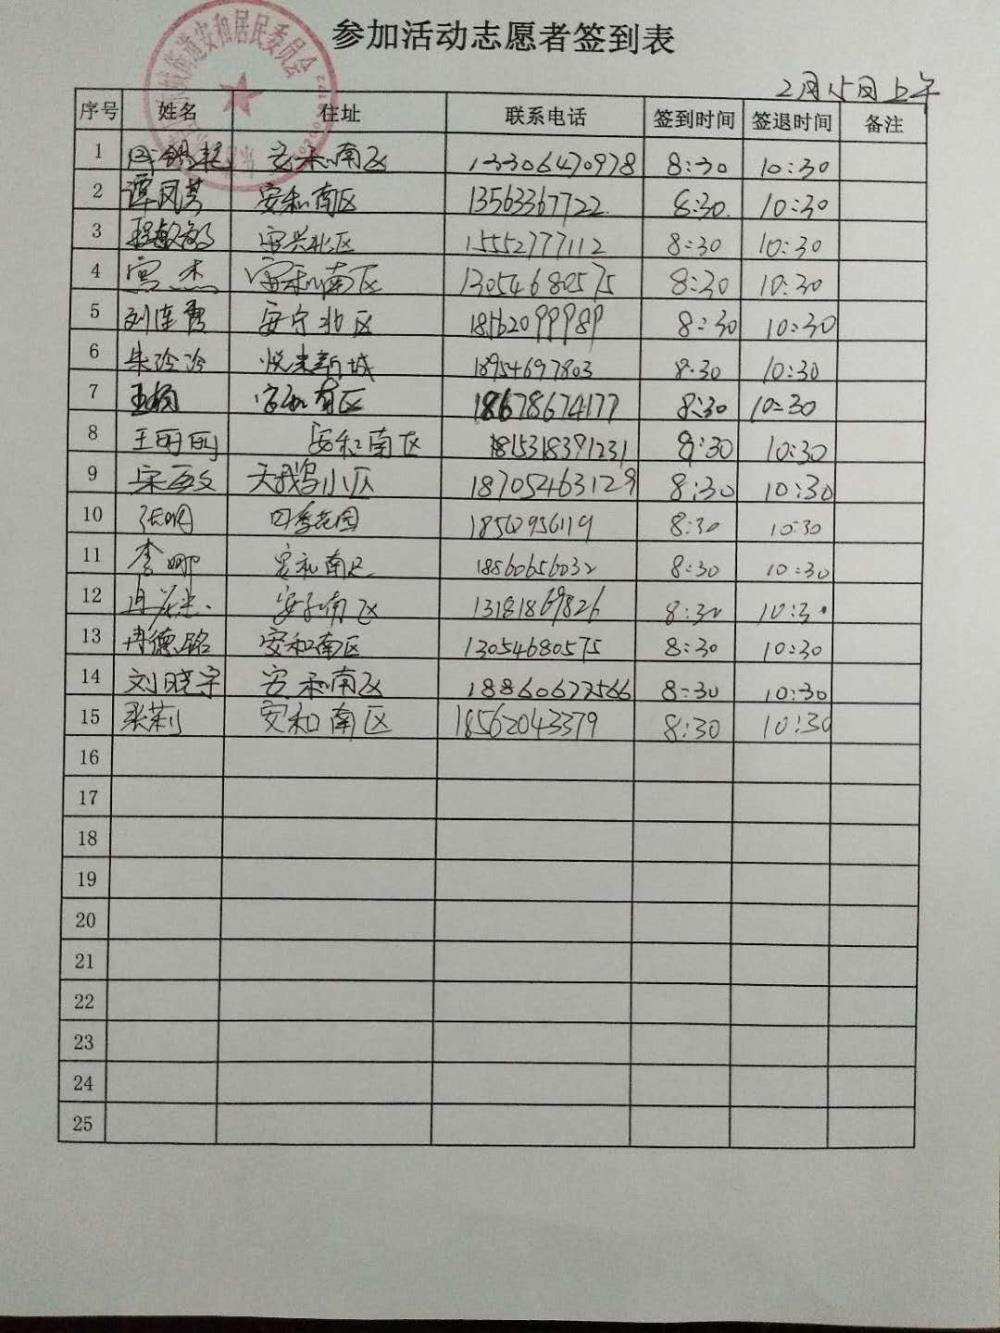 参加活动志愿者签到表
2月15日上午
序号 姓名 住址 联系电话 签到时间 签退时间 备注
1 安和南区 13306470978 8:30 10:30
2 谭风芳 安和南区 13563367722 8:30 10:30
3 程敏 安兴北区 15552777112 8:30 10:30
4 宫杰 安和南区 13054680575 8:30 10:30
5 刘连秀 安宁北区 8:30 10:30
6 朱玲玲 悦来新城 18954697803 8:30 10:30
7 王楠 安和南区 18678674177 8:30 10:30
8 王丽丽 安和南区 8:30 10:30
9 宋敏 天鹅湾小区 18705463129 8:30 10:30
10 张明 四季花园 8:30 10:30
11 李娜 安和南区 18860656032 8:30 10:30
12 安和南区 13181869826 8:30 10:30
13 冉德铭 安和南区 13054680575 8:30 10:30
14 刘晓宇 安和南区 18860677566 8:30 10:30
15 张莉 安和南区 18562043379 8:30 10:30
16
17
18
19
20
21
22
23
24
25
街道安和居民委员会